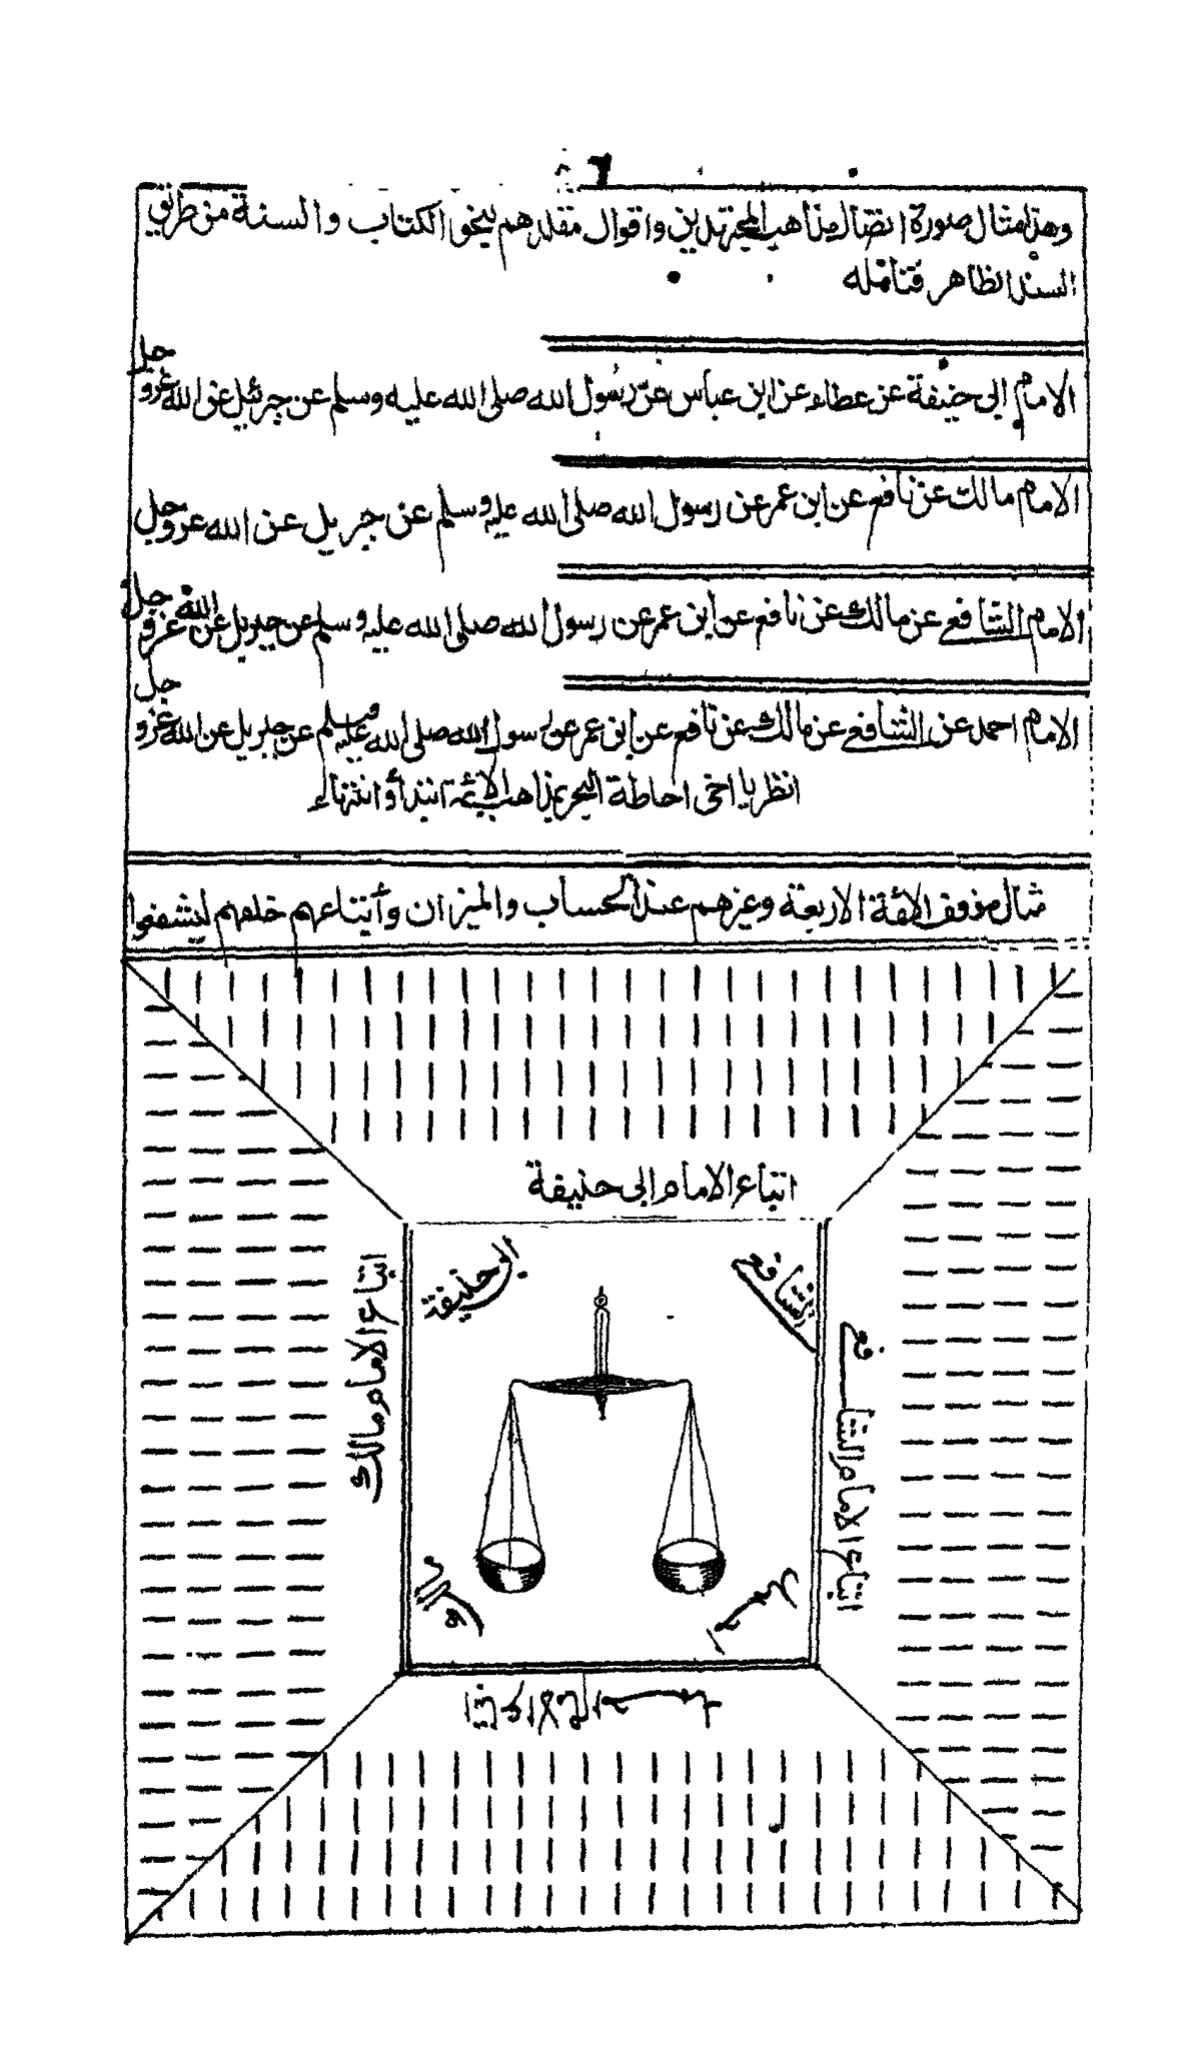 وهذا مثال صورة اتصال مذاهب المجتهدين واقوال مقلديهم بنحو الكتاب والسنة من طريق
السند الظاهر فتأمله
الامام ابي حنيفة عن عطاء عن ابن عباس عن رسول الله صلى الله عليه وسلم عن جبريل عن الله عزوجل
الامام مالك عن نافع عن ابن عمر عن رسول الله صلى الله عليه وسلم عن جبريل عن الله عزوجل
الامام الشافعي عن مالك عن نافع عن ابن عمر عن رسول الله صلى الله عليه وسلم عن جبريل عن الله عزوجل
الامام احمد عن الشافعي عن مالك عن نافع عن ابن عمر عن رسول الله صلى الله عليه وسلم عن جبريل عن الله عزوجل
انظر يا اخى احاطة البحر بمذاهب الائمة ابتدأ وانتهاء
مثال موقف الائمة الاربعة وغيرهم عند الحساب والميزان وأتباعهم خلفهم ليشفعوا
اتباع الامام ابى حنيفة
الشافعي
ابى حنيفة
اتباع الامام مالك
اتباع الامام الشافعي
احمد
مالك
اتباع الامام احمد